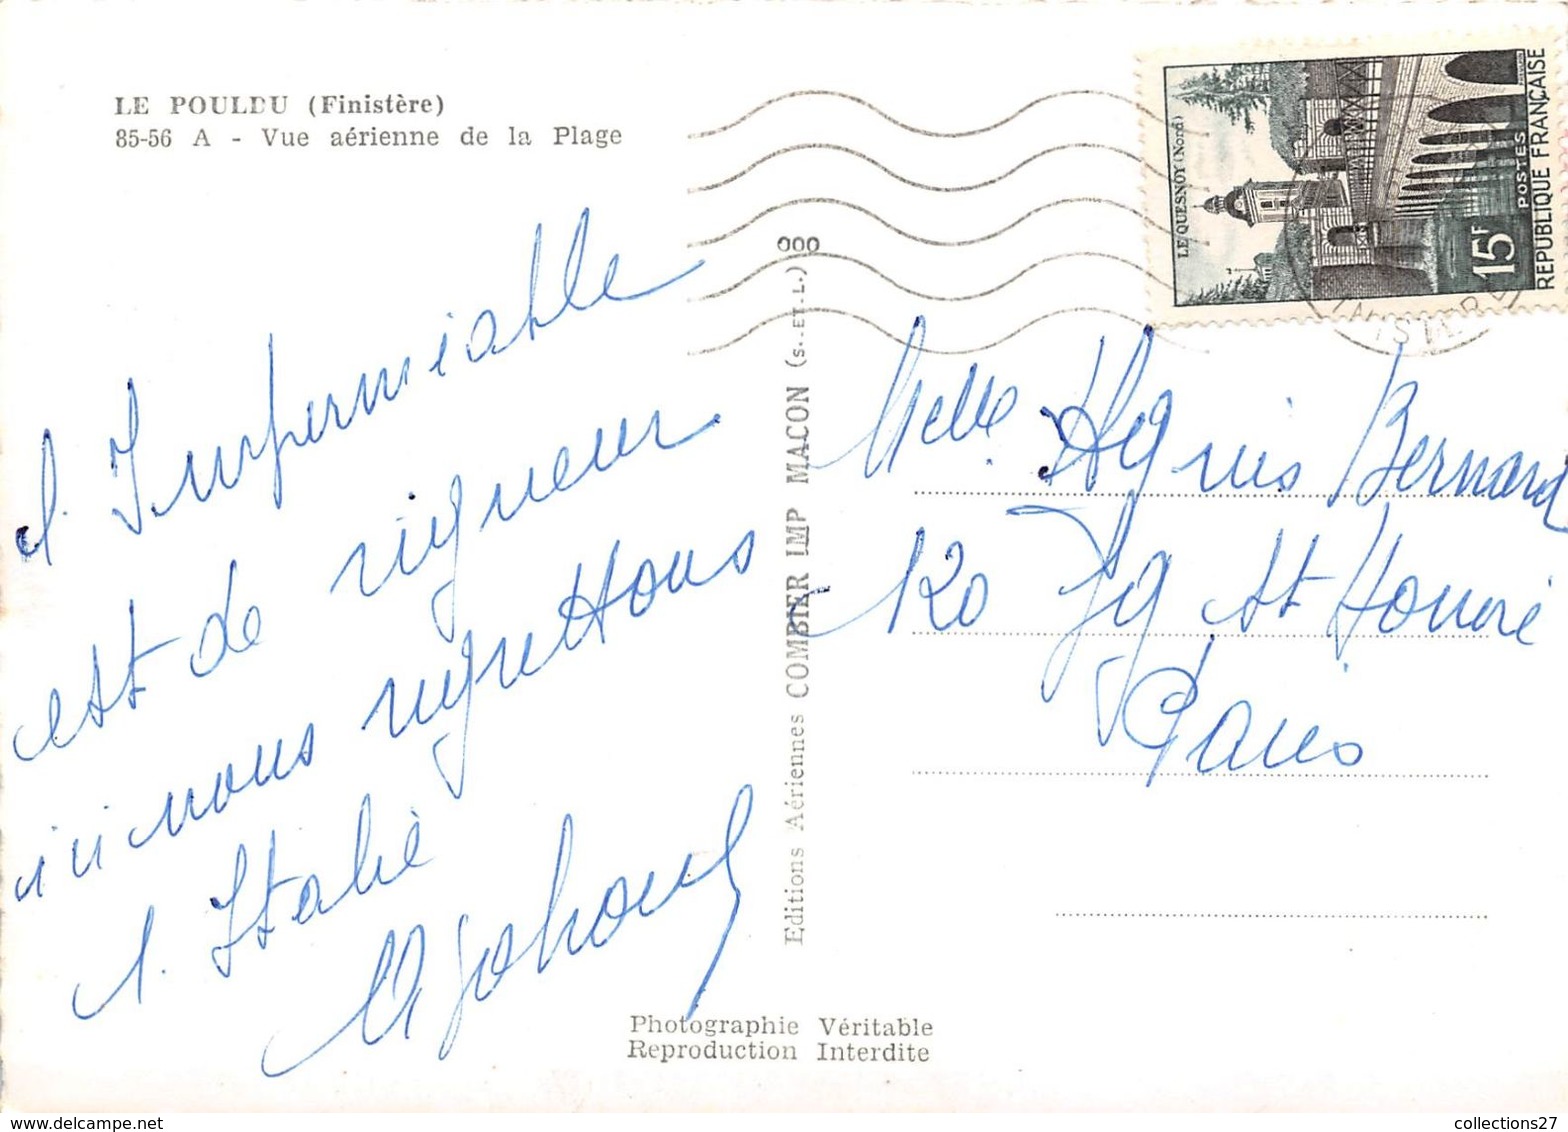 LE POULDU (Finistère)
85-56 A - Vue aérienne de la Plage
LE QUESNOY (Nord)
15F
POSTES
REPUBLIQUE FRANÇAISE
FINISTERE
000
l'Imperméable
est de rigueur
ici nous regrettons
l'Italie
Melle Agnis Bernard
120 Fg St Honoré
Paris
Editions Aériennes COMBIER IMP MACON (S.-ET-L.)
Photographie Véritable
Reproduction Interdite
collections27